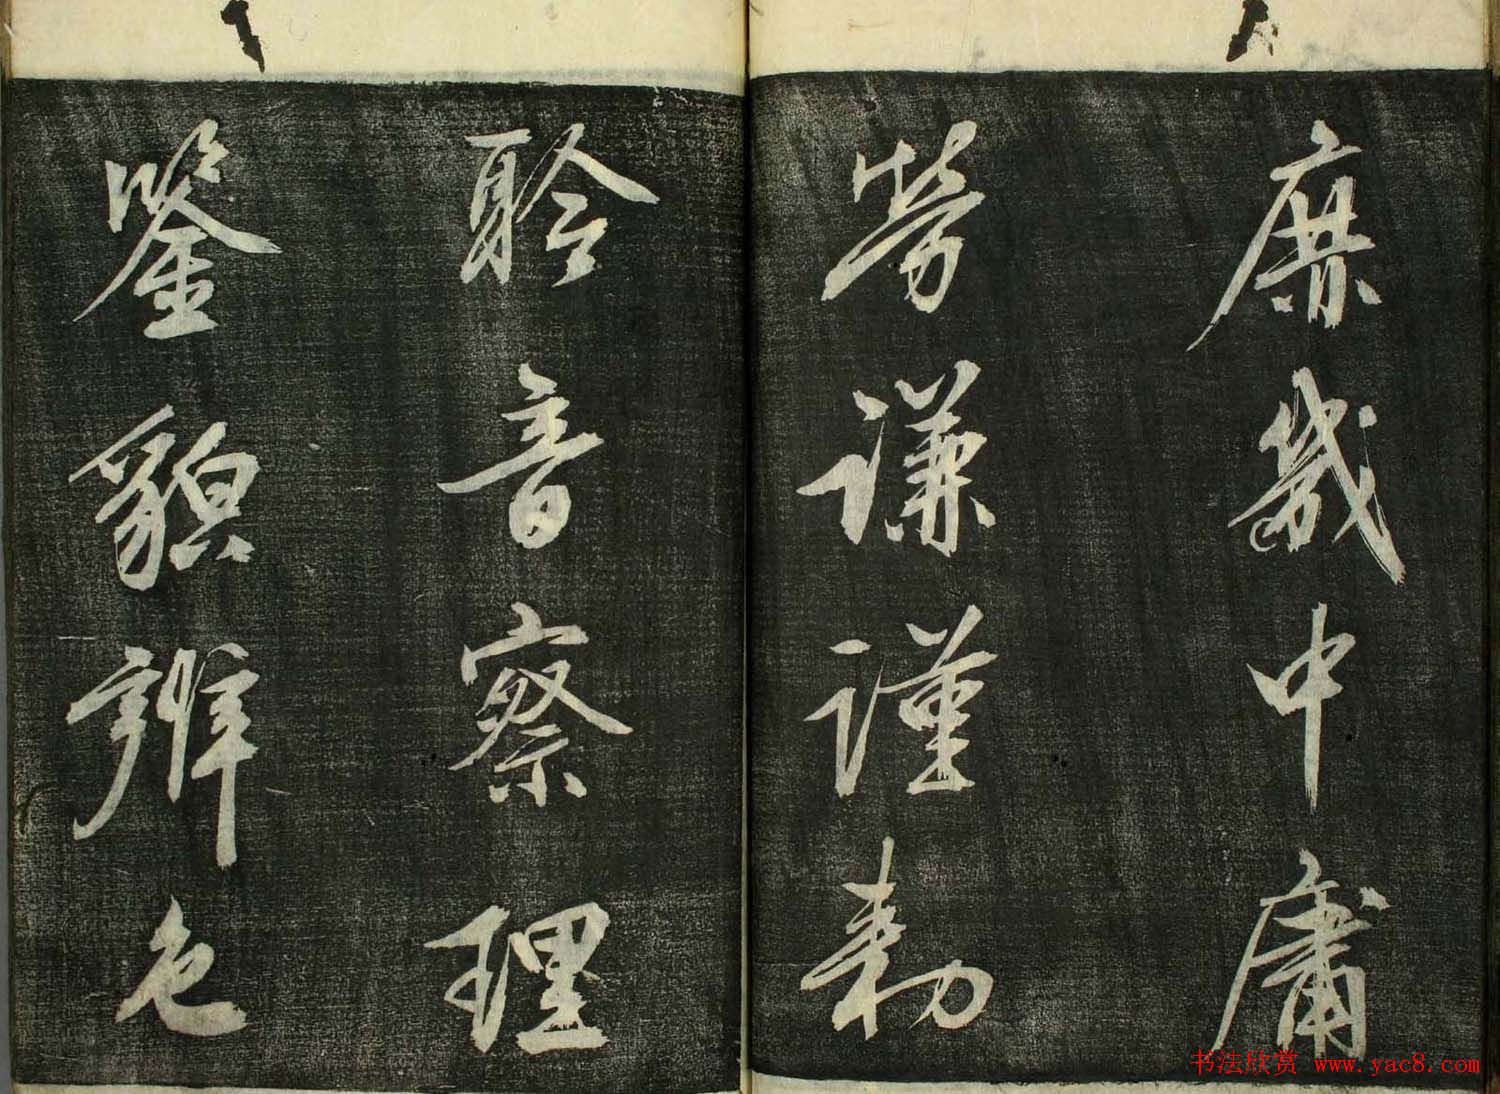 庶幾中庸
勞謙謹勅
聆音察理
鑒貌辨色
书法欣赏 www.yac8.com